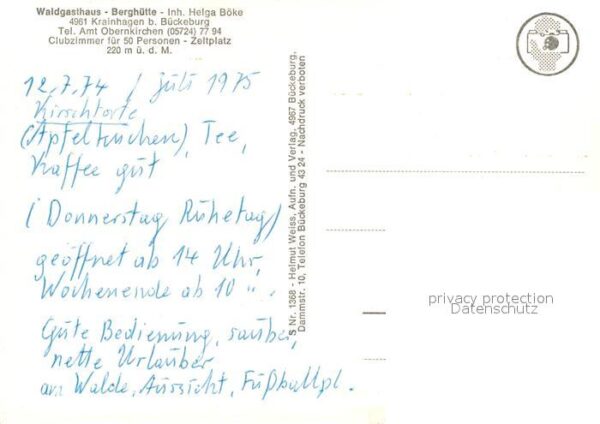 Waldgasthaus - Berghütte - Inh. Helga Böke
4961 Krainhagen b. Bückeburg
Tel. Amt Obernkirchen (05724) 77 94
Clubzimmer für 50 Personen - Zeltplatz
220 m ü. d. M.
12.7.74 / Juli 1975
Kirschtorte
(Apfelkuchen), Tee,
Kaffee gut
(Donnerstag Ruhetag)
geöffnet ab 14 Uhr,
Wochenende ab 10 ".
Gute Bedienung, sauber,
nette Urlauber
am Walde, Aussicht, Fußballpl.
S Nr. 1368 - Helmut Weiss, Aufn. und Verlag, 4967 Bückeburg,
Dammstr. 10, Telefon Bückeburg 43 24 - Nachdruck verboten
privacy protection
Datenschutz